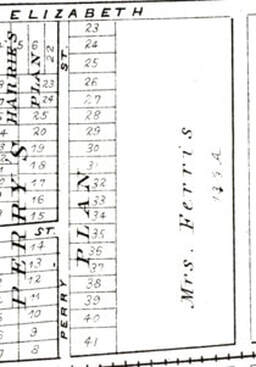 ELIZABETH
ST.
HARRIES
PLAN
PERRY'S
PLAN
5 6 22
23
24
25
20
19
18
17
16
15
ST.
14
13
12
11
10
9
8
PERRY
23
24
25
26
27
28
29
30
31
32
33
34
35
36
37
38
39
40
41
Mrs. Ferris